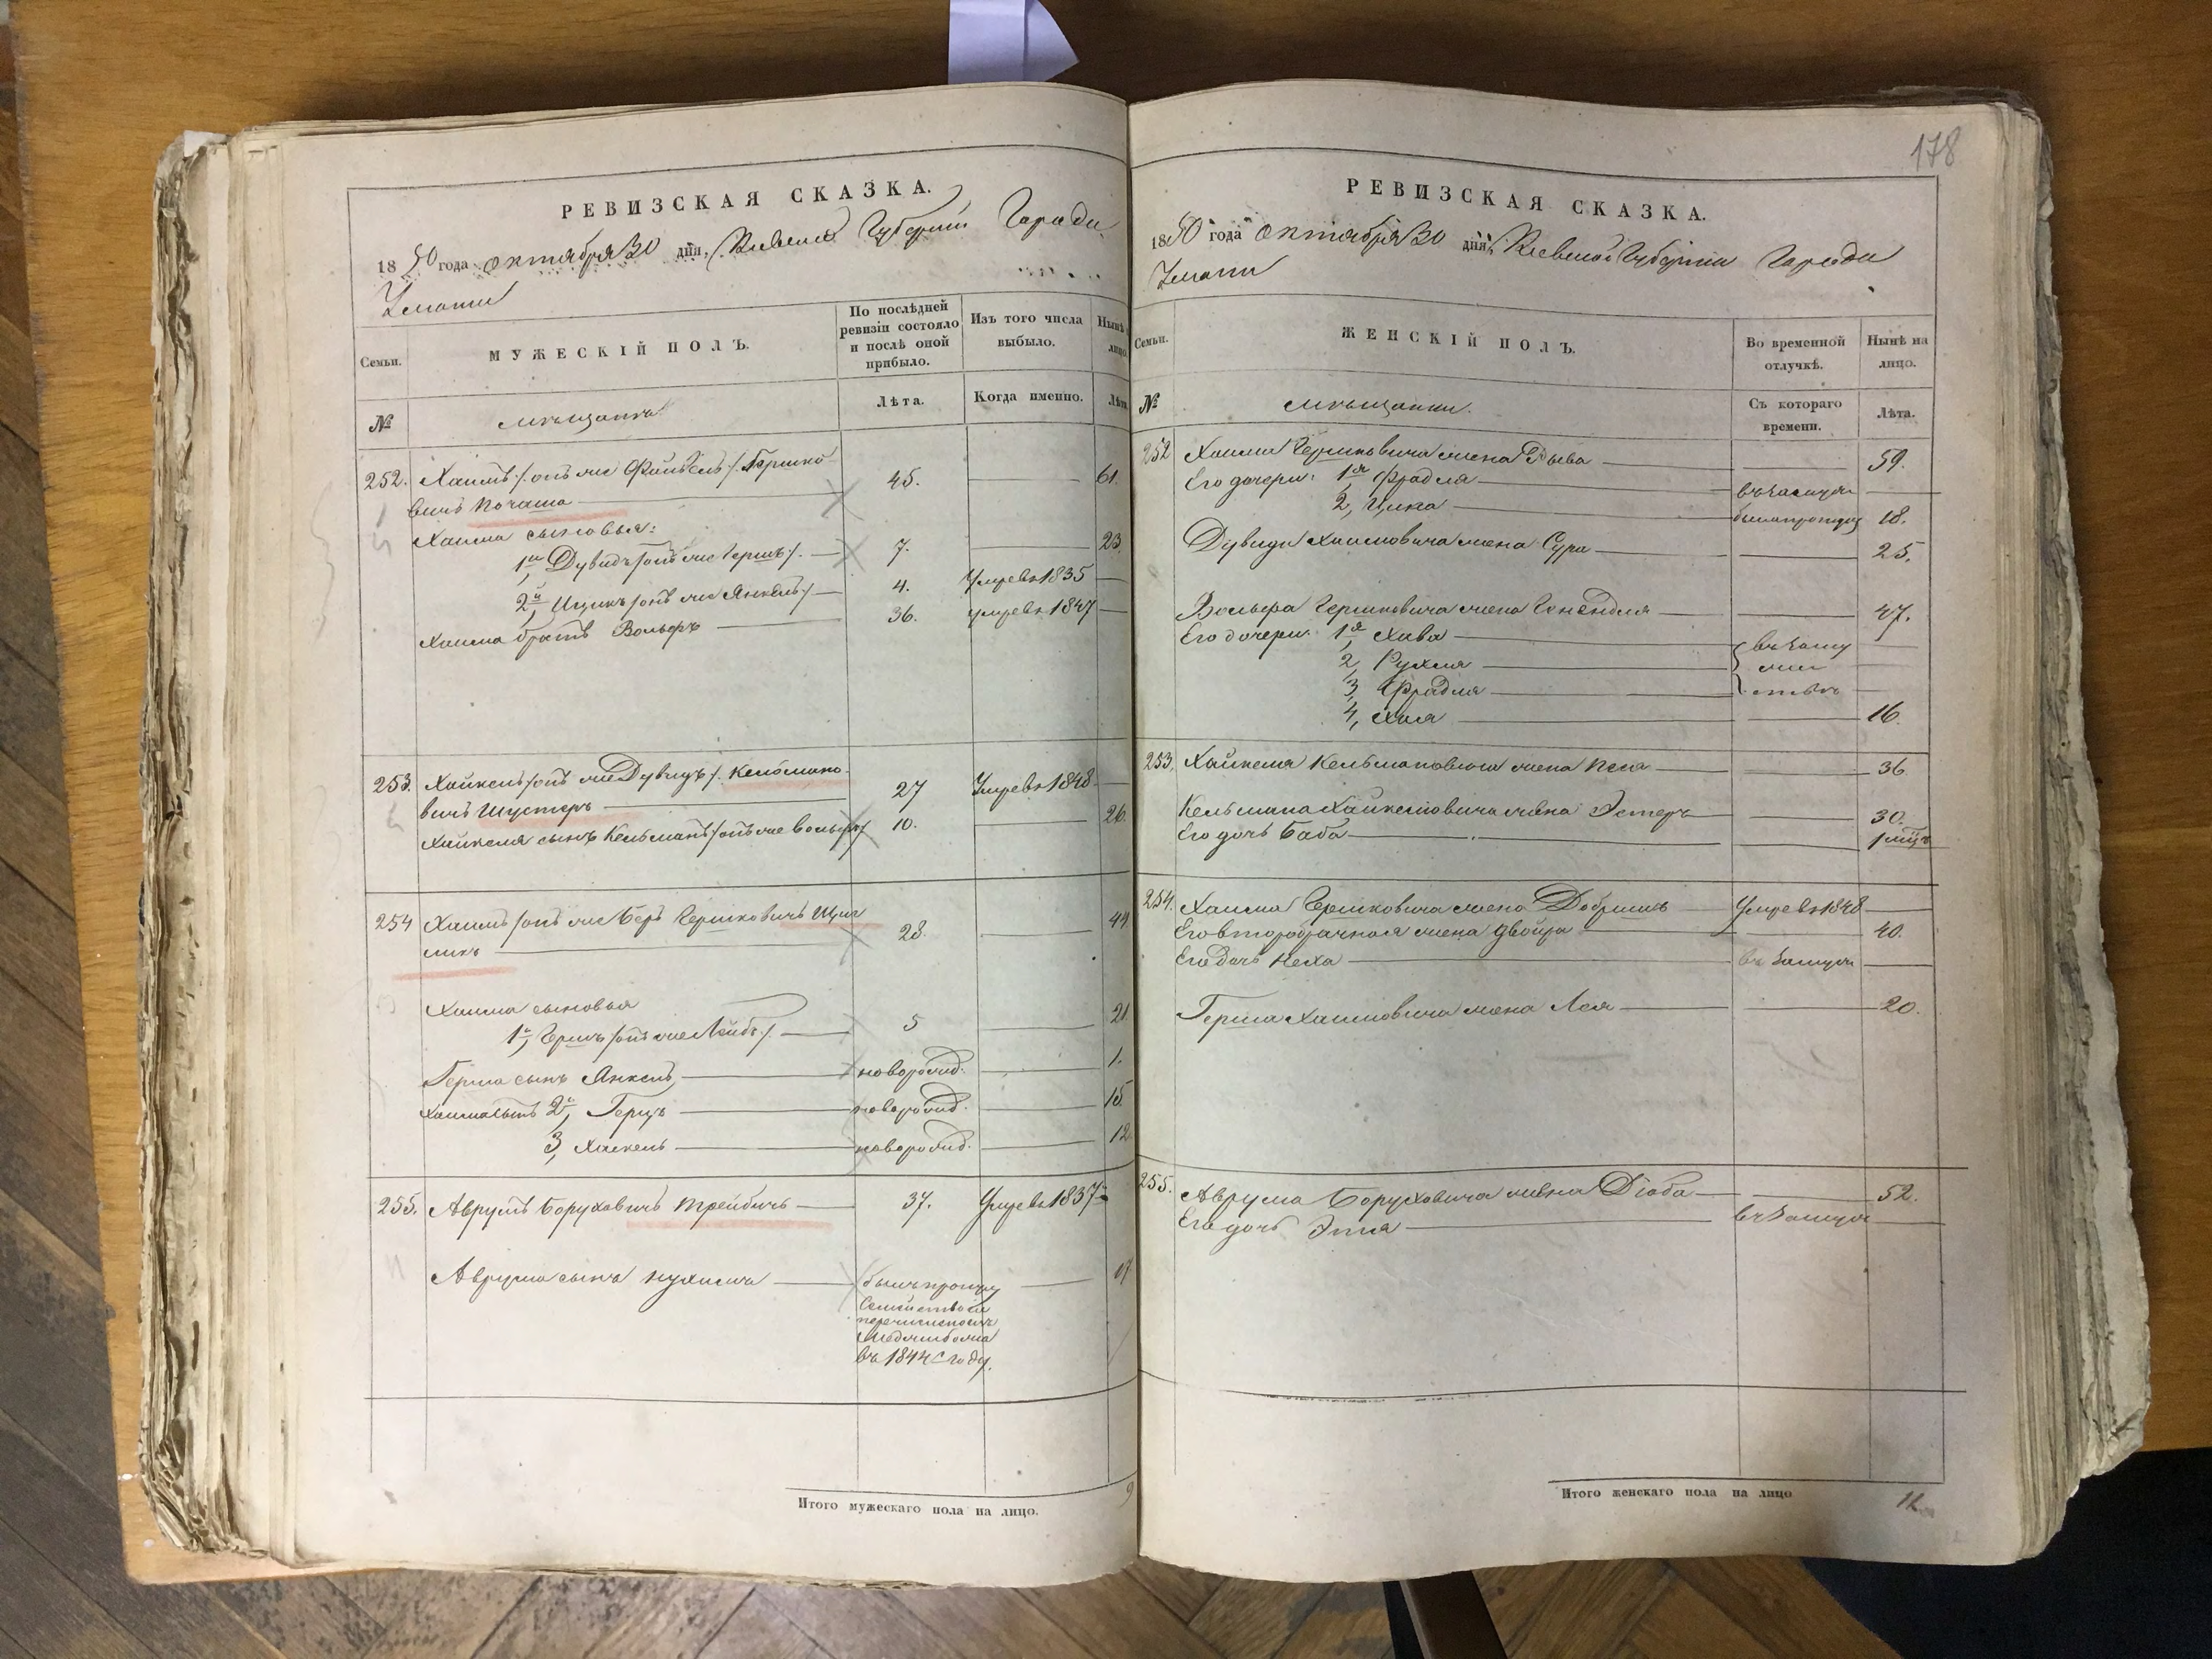 178
РЕВИЗСКАЯ СКАЗКА.
1850 года октября 30 дня, Киевской Губернии Города
Умани
Семьи.
МУЖЕСКІЙ ПОЛЪ.
По послѣдней ревизіи состояло и послѣ оной прибыло.
Изъ того числа выбыло.
Нынѣ лицо.
№
мѣщанъ
Лѣта.
Когда именно.
Лѣта
252. Хаимъ /: онъ же Файвель :/ Гершко- 45. 61.
вичъ Почаша
Хаима сыновья:
1й, Дувидъ /онъ же Гершъ/. 7. 23
2й, Ицикъ /онъ же Янкель/ 4. Умре въ 1835
Хаима братъ Вольфъ 36. умре въ 1847
253. Хайкель /онъ же Дувидъ/. Кельмано- 27 Умре въ 1848
вичъ Шустеръ
Хайкеля сынъ Кельманъ /онъ же Вольфъ/ 10. 26.
254 Хаимъ /онъ же Беръ Гершковичъ 28. 44
Хаима сыновья
1й, Гершъ /онъ же Лейбъ/. 5 21.
Герша сынъ Янкель новорожд. 1.
Хаима сынъ 2й, Герцъ новорожд. 15.
3, Хаскель новорожд. 12.
255. Аврумъ Боруховичъ Трейбичъ 37. Умре въ 1837
Аврума сынъ Нухимъ 17
въ 1844 году.
Итого мужескаго пола на лицо. 9
РЕВИЗСКАЯ СКАЗКА.
1850 года октября 30 дня, Киевской Губернии Города
Умани
Семьи.
ЖЕНСКІЙ ПОЛЪ.
Во временной отлучкѣ.
Нынѣ на лицо.
№
мѣщанки.
Съ котораго времени.
Лѣта.
252 Хаима Гершковича жена Рыва 59.
Его дочери: 1я Фрадля въ замуж
2, Ципа 18.
Дувида Хаимовича жена Сура 25.
Вольфа Гершковича жена Генендля 47.
Его дочери 1я, Хава въ заму
2, Рухля же
3, Фрадля ствѣ
4, Хая 16.
253. Хайкеля Кельмановича жена Песя 36
Кельмана Хайкелевича жена Эстеръ 30.
Его дочь Баба 1 мѣц.
254. Хаима Гершковича жена Добришъ Умре въ 1848
Его второбрачная жена Двойра 40.
Его дочь Неха въ замуж
Герша Хаимовича жена Лея 20.
255. Аврума Боруховича жена Діоба 52.
Его дочь Этя въ замуж
Итого женскаго пола на лицо